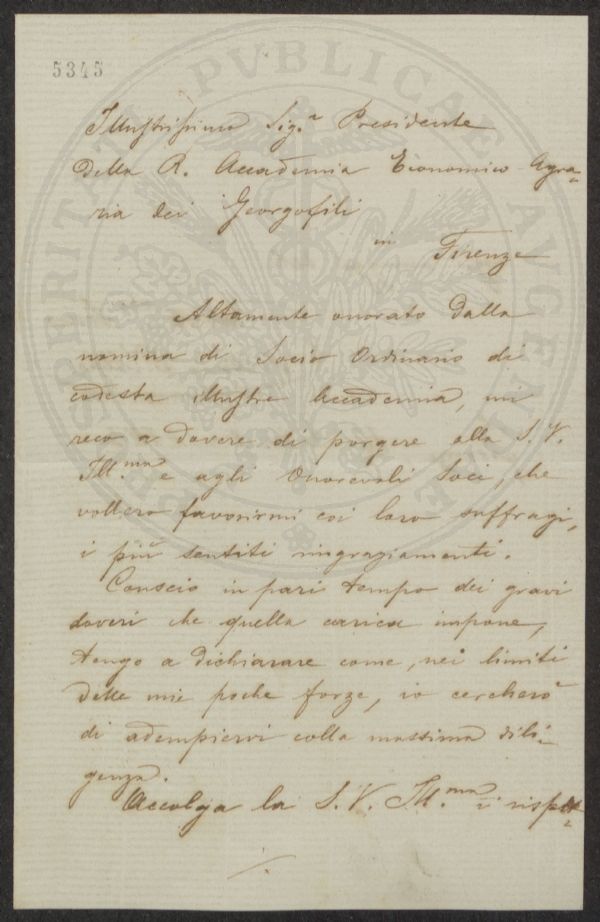 5345
PROSPERITATI PVBLICAE AVGENDAE
Illustrissimo Sig.r Presidente
della R. Accademia Economico-Agra=
ria dei Georgofili
in Firenze
Altamente onorato dalla
nomina di Socio Ordinario di
codesta illustre Accademia, mi
reco a dovere di porgere alla S. V.
Ill.ma e agli Onorevoli Soci, che
vollero favorirmi coi loro suffragi,
i più sentiti ringraziamenti.
Conscio in pari tempo dei gravi
doveri che quella carica impone,
tengo a dichiarare come, nei limiti
delle mie poche forze, io cercherò
di adempiervi colla massima dili=
genza.
Accolga la S. V. Ill.ma i rispet=